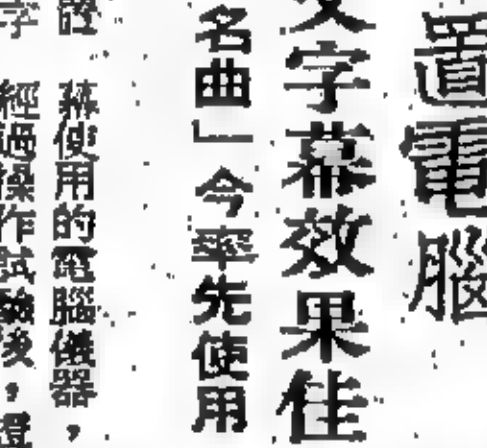 置電腦
文字幕效果佳
名曲」今率先使用
證　藉使用的電腦儀器，
字　經過操作試驗後，證